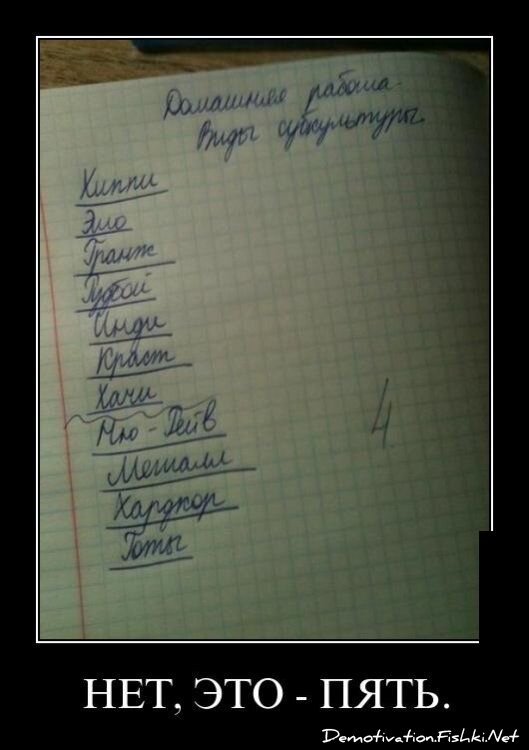 Домашняя работа.
Виды субкультуры.
Хиппи
Эмо
Гранж
Рудбой
Инди
Краст
Хачи
Ню-Рейв
Металл
Хардкор
Готы
4
НЕТ, ЭТО - ПЯТЬ.
Demotivation.Fishki.Net